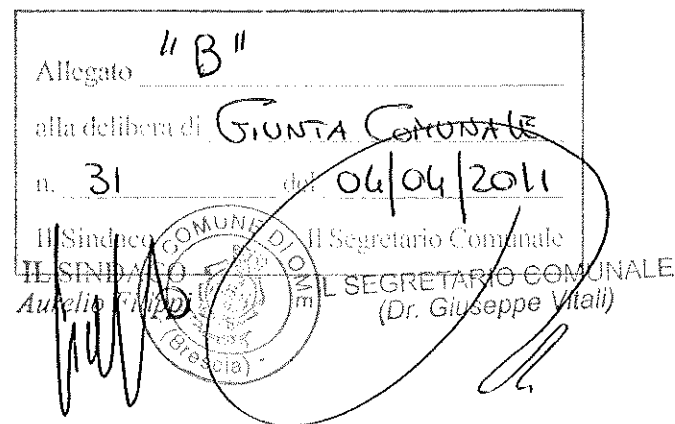 Allegato "B"
alla delibera di GIUNTA COMUNALE
n. 31 del 04/04/2011
Il Sindaco Il Segretario Comunale
IL SINDACO IL SEGRETARIO COMUNALE
Aurelio Filippi (Dr. Giuseppe Vitali)
COMUNE DI OME
(Brescia)